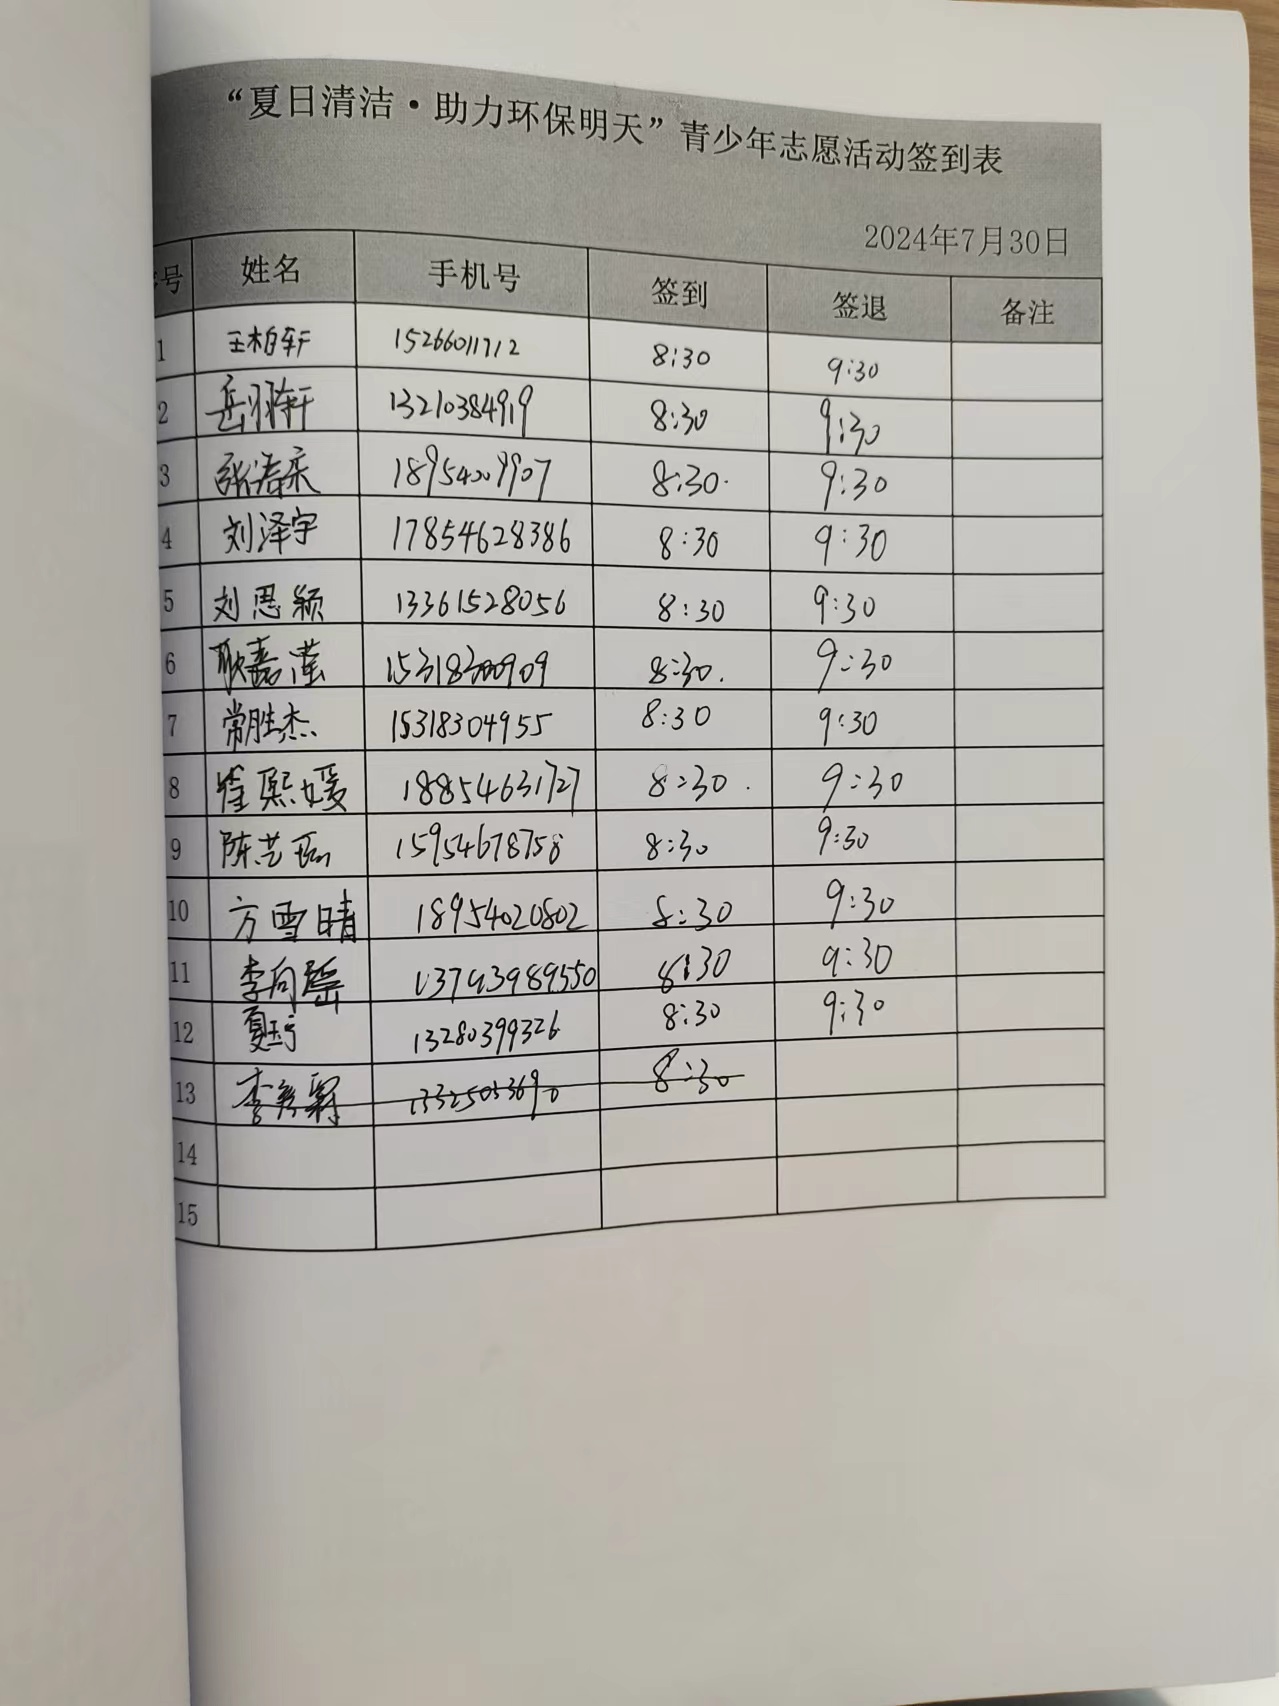 “夏日清洁·助力环保明天”青少年志愿活动签到表
2024年7月30日
号 姓名 手机号 签到 签退 备注
1 王柏轩 15266011712 8:30 9:30
2 岳雅轩 13210384919 8:30 9:30
3 张涛栾 18954009907 8:30 9:30
4 刘泽宇 17854628386 8:30 9:30
5 刘思颖 13361528056 8:30 9:30
6 耿嘉滢 15318300909 8:30 9:30
7 常胜杰 15318304955 8:30 9:30
8 崔熙媛 18854631727 8:30 9:30
9 陈芸 15954678758 8:30 9:30
10 方雪晴 18954020802 8:30 9:30
11 李向 13793989550 8:30 9:30
12 夏 13280399326 8:30 9:30
13 李 8:30
14
15